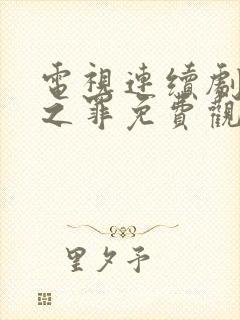 電視連續劇
之罪免費觀
里夕予